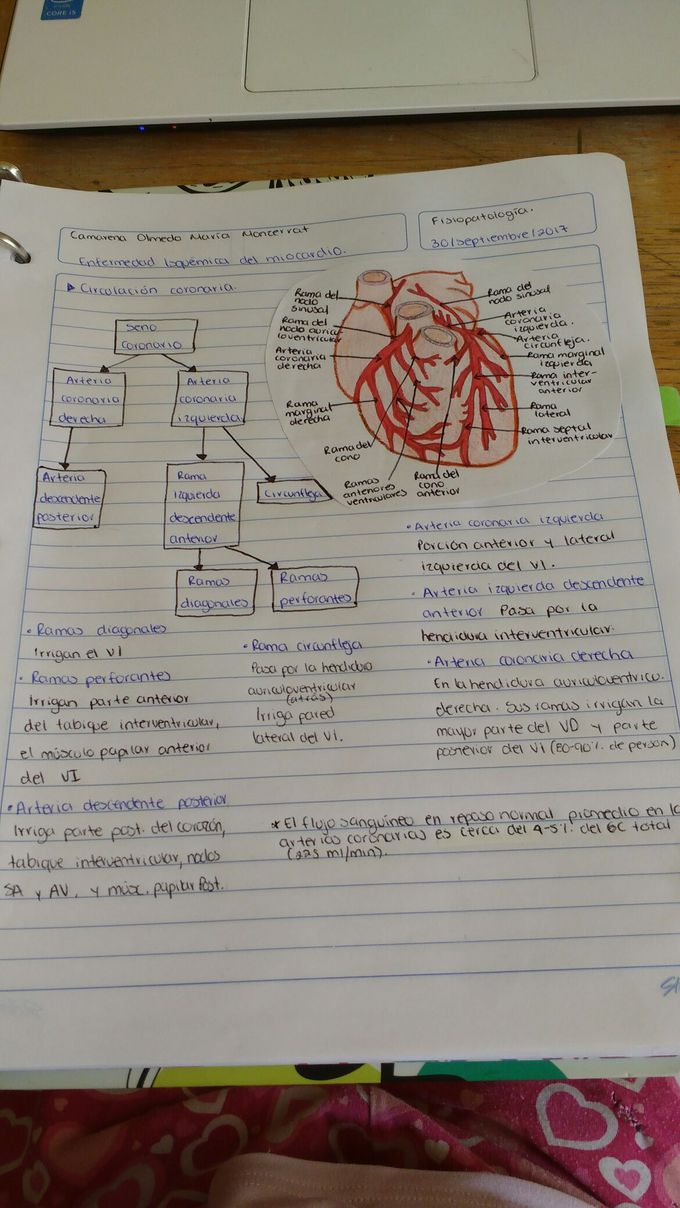 CORE i5
Camarena Olmedo María Monzerrat
Enfermedad Isquémica del miocardio.
Fisiopatología.
30/septiembre/2017
Circulación coronaria.
Seno
coronario
Arteria
coronaria
derecha
Arteria
coronaria
izquierda
Arteria
descendente
posterior
Rama
izquierda
descendente
anterior
Circunfleja
Ramas
diagonales
Ramas
perforantes
Rama del
nodo
sinusal
Rama del
nodo auricu-
loventricular
Arteria
coronaria
derecha
Rama
marginal
derecha
Rama del
cono
Ramas
anteriores
ventriculares
Rama del
cono
anterior
Rama del
nodo sinusal
Arteria
coronaria
izquierda.
Arteria
circunfleja.
Rama marginal
izquierda
Rama inter-
ventricular
anterior
Rama
lateral
Rama septal
interventricular
• Ramas diagonales
Irrigan el VI
• Ramas perforantes
Irrigan parte anterior
del tabique interventricular,
el músculo papilar anterior
del VI
• Arteria descendente posterior
Irriga parte post. del corazón,
tabique interventricular, nodos
SA y AV, y músc. papilar Post.
• Rama circunfleja
Pasa por la hendidura
auriculoventricular
(atrás)
Irriga pared
lateral del VI.
• Arteria coronaria izquierda
Porción anterior y lateral
izquierda del VI.
• Arteria izquierda descendente
anterior Pasa por la
hendidura interventricular.
• Arteria coronaria derecha
En la hendidura auriculoventricu.
derecha. Sus ramas irrigan la
mayor parte del VD y parte
posterior del VI (80-90% de person)
* El flujo sanguíneo en reposo normal promedio en la
arterias coronarias es cerca del 4-5% del GC total
(225 ml/min).